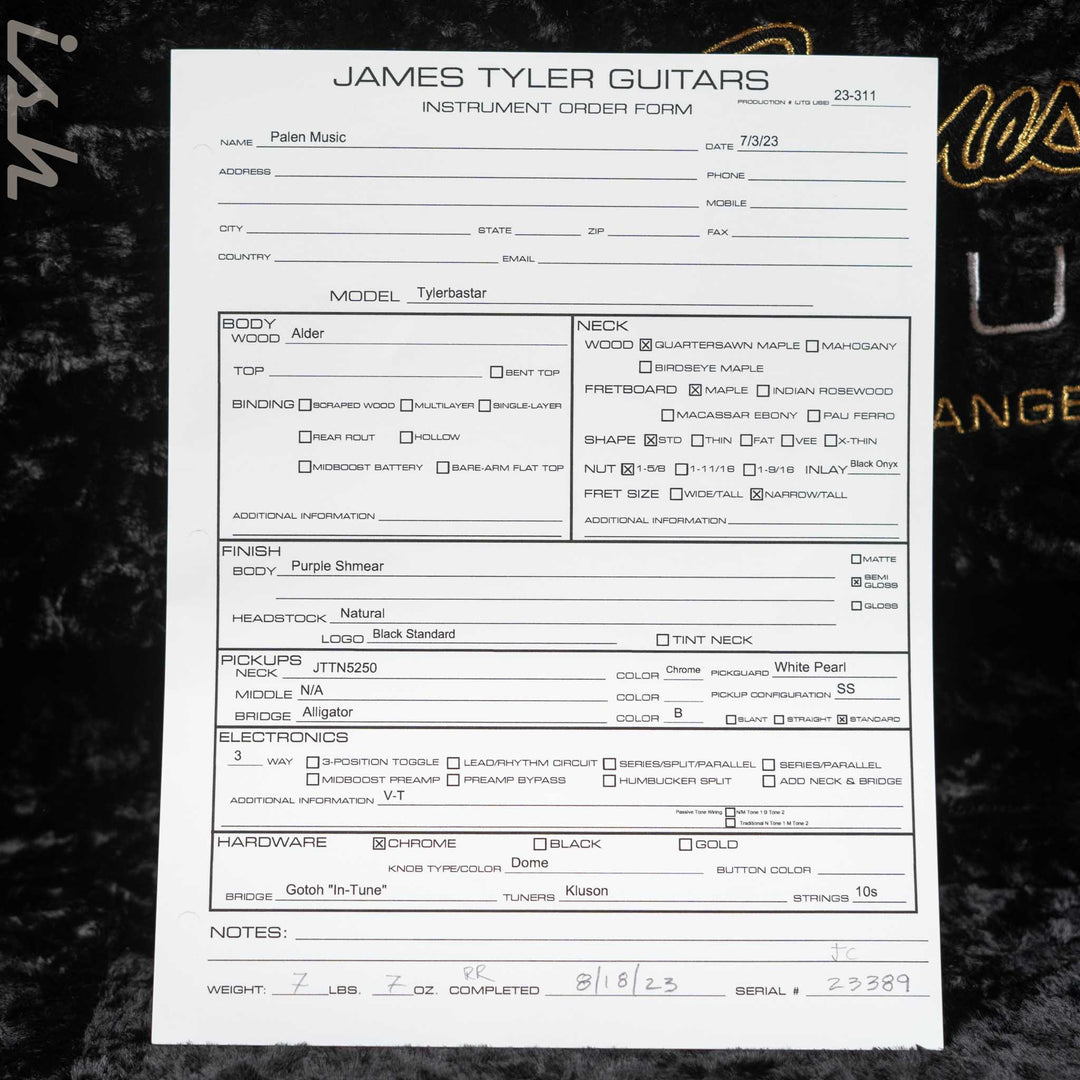 ish
JAMES TYLER GUITARS
INSTRUMENT ORDER FORM
PRODUCTION # (JTG USE) 23-311
NAME Palen Music DATE 7/3/23
ADDRESS PHONE
MOBILE
CITY STATE ZIP FAX
COUNTRY EMAIL
MODEL Tylerbastar
BODY
WOOD Alder
TOP ☐ BENT TOP
BINDING ☐ SCRAPED WOOD ☐ MULTILAYER ☐ SINGLE-LAYER
☐ REAR ROUT ☐ HOLLOW
☐ MIDBOOST BATTERY ☐ BARE-ARM FLAT TOP
ADDITIONAL INFORMATION
NECK
WOOD ☒ QUARTERSAWN MAPLE ☐ MAHOGANY
☐ BIRDSEYE MAPLE
FRETBOARD ☒ MAPLE ☐ INDIAN ROSEWOOD
☐ MACASSAR EBONY ☐ PAU FERRO
SHAPE ☒ STD ☐ THIN ☐ FAT ☐ VEE ☐ X-THIN
NUT ☒ 1-5/8 ☐ 1-11/16 ☐ 1-9/16 INLAY Black Onyx
FRET SIZE ☐ WIDE/TALL ☒ NARROW/TALL
ADDITIONAL INFORMATION
FINISH
BODY Purple Shmear ☐ MATTE
☒ SEMI GLOSS
☐ GLOSS
HEADSTOCK Natural
LOGO Black Standard ☐ TINT NECK
PICKUPS
NECK JTTN5250 COLOR Chrome PICKGUARD White Pearl
MIDDLE N/A COLOR PICKUP CONFIGURATION SS
BRIDGE Alligator COLOR B ☐ SLANT ☐ STRAIGHT ☒ STANDARD
ELECTRONICS
3 WAY ☐ 3-POSITION TOGGLE ☐ LEAD/RHYTHM CIRCUIT ☐ SERIES/SPLIT/PARALLEL ☐ SERIES/PARALLEL
☐ MIDBOOST PREAMP ☐ PREAMP BYPASS ☐ HUMBUCKER SPLIT ☐ ADD NECK & BRIDGE
ADDITIONAL INFORMATION V-T
Passive Tone Wiring. ☐ N/M Tone 1 B Tone 2
☐ Traditional N Tone 1 M Tone 2
HARDWARE ☒ CHROME ☐ BLACK ☐ GOLD
KNOB TYPE/COLOR Dome BUTTON COLOR
BRIDGE Gotoh "In-Tune" TUNERS Kluson STRINGS 10s
NOTES:
RR JC
WEIGHT: 7 LBS. 7 OZ. COMPLETED 8/18/23 SERIAL # 23389
U
ANGE